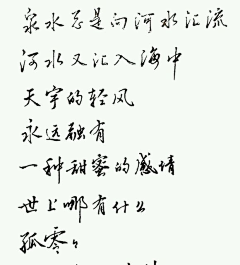 泉水总是向河水汇流
河水又汇入海中
天宇的轻风
永远融有
一种甜蜜的感情
世上哪有什么
孤零々